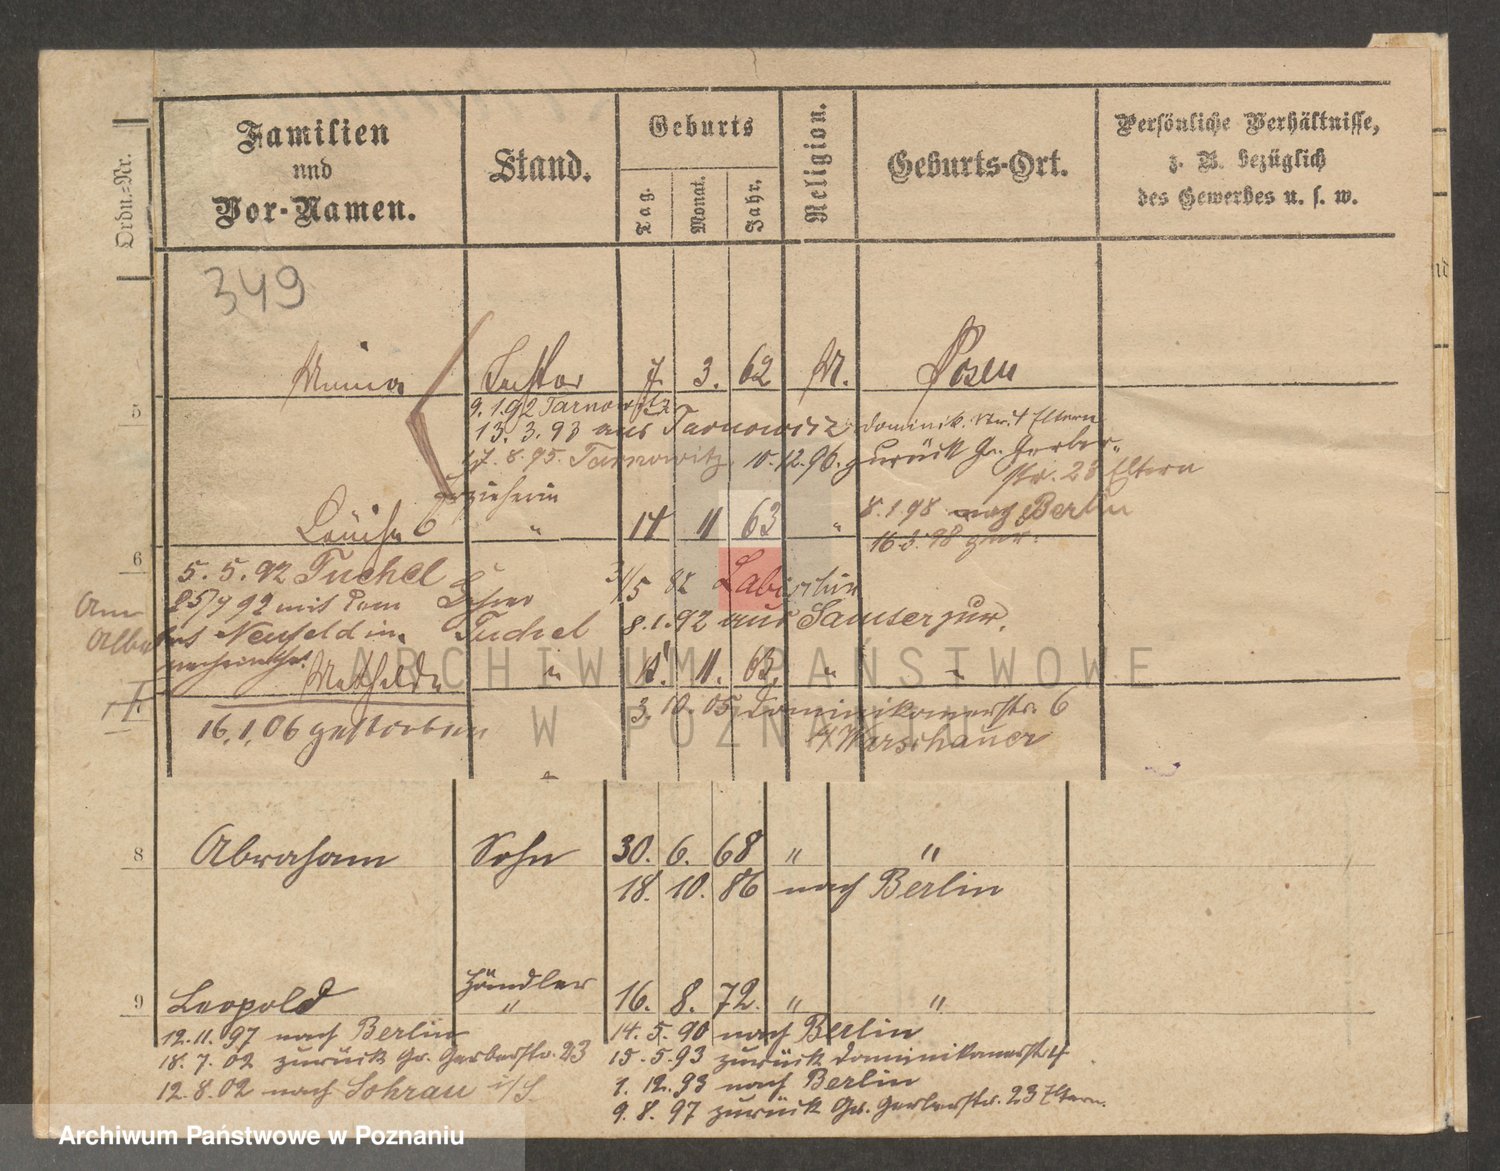 Ordn.=Nr.
Familien
und
Vor-Namen.
Stand.
Geburts
Tag.
Monat.
Jahr.
Religion.
Geburts-Ort.
Persönliche Verhältnisse,
z. B. bezüglich
des Gewerbes u. s. w.
349
5
Tochter 7. 3. 62 M. Posen
9. 1. 92 Tarnowitz
13. 3. 93 aus Tarnowitz dominik. Eltern
17. 8. 95. Tarnowitz, 10. 12. 96. zurück Gr. Gerber-
str. 23 Eltern
Erzieherin
8. 1. 98 nach Berlin
Louise " 14 11 63 "
16. 3. 98 zur.
6
5. 5. 92 Tuchel Lehrer 31/5 82 Labischin
Tuchel 8. 1. 92 aus Samter zur.
Neufeld in
Mathilde " 11. " "
16. 1. 06 gestorben
3. 10. 05 Dominikanerstr. 6
b/ Warschauer
8
Abraham Sohn 30. 6. 68 " "
18. 10. 86 nach Berlin
Händler
9
Leopold " 16. 8. 72. " "
12. 11. 97 nach Berlin
18. 7. 02 zurück Gr. Gerberstr. 23
12. 8. 02 nach Sohrau i/S.
14. 5. 90 nach Berlin
15. 5. 93 zurück Dominikanerstr. 4
1. 12. 93 nach Berlin
9. 8. 97 zurück Gr. Gerberstr. 23 Eltern.
ARCHIWUM PAŃSTWOWE
W POZNANIU
Archiwum Państwowe w Poznaniu